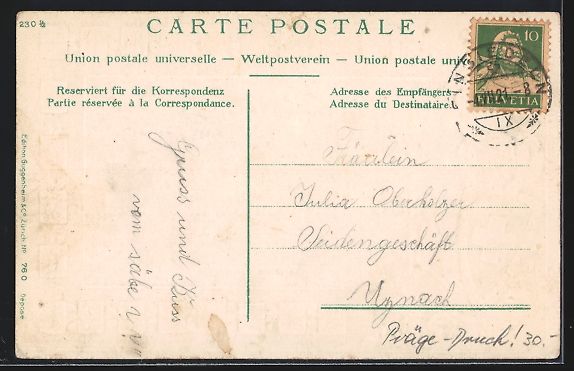 230 ½
CARTE POSTALE
Union postale universelle — Weltpostverein — Union postale
Reserviert für die Korrespondenz
Partie réservée à la Correspondance.
Adresse des Empfängers
Adresse du Destinataire
10
HELVETIA
IX
Gruss und Kuss
vom
Fräulein
Julia Oberholzer
Seidengeschäft
Uznach
Präge-Druck! 30.-
Edition Guggenheim & Co., Zürich Nº 760 Déposé